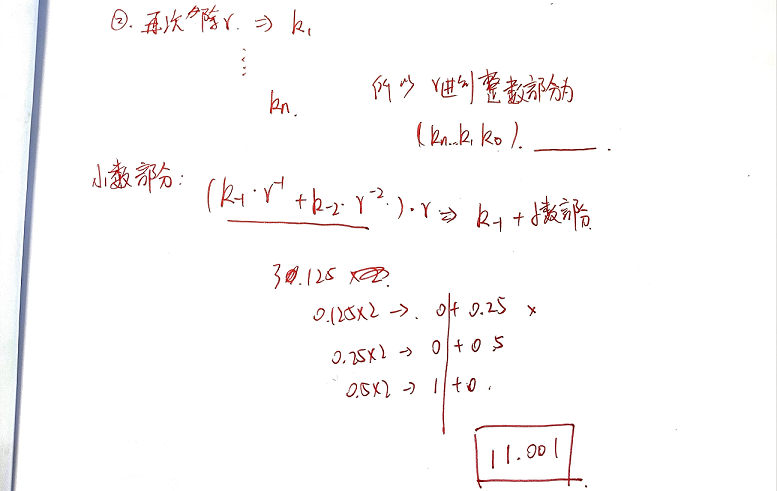 ②. 再次÷除r. ⇒ k₁
⋮
kₙ.
所以 r进制整数部分为
(kₙ…k₁ k₀). ____ .
小数部分: (k₋₁·r⁻¹ + k₋₂·r⁻².)·r ⇒ k₋₁ + 小数部分
3.125
0.125×2 →. 0 + 0.25 ×
0.25×2 → 0 + 0.5
0.5×2 → 1 + 0.
11.001